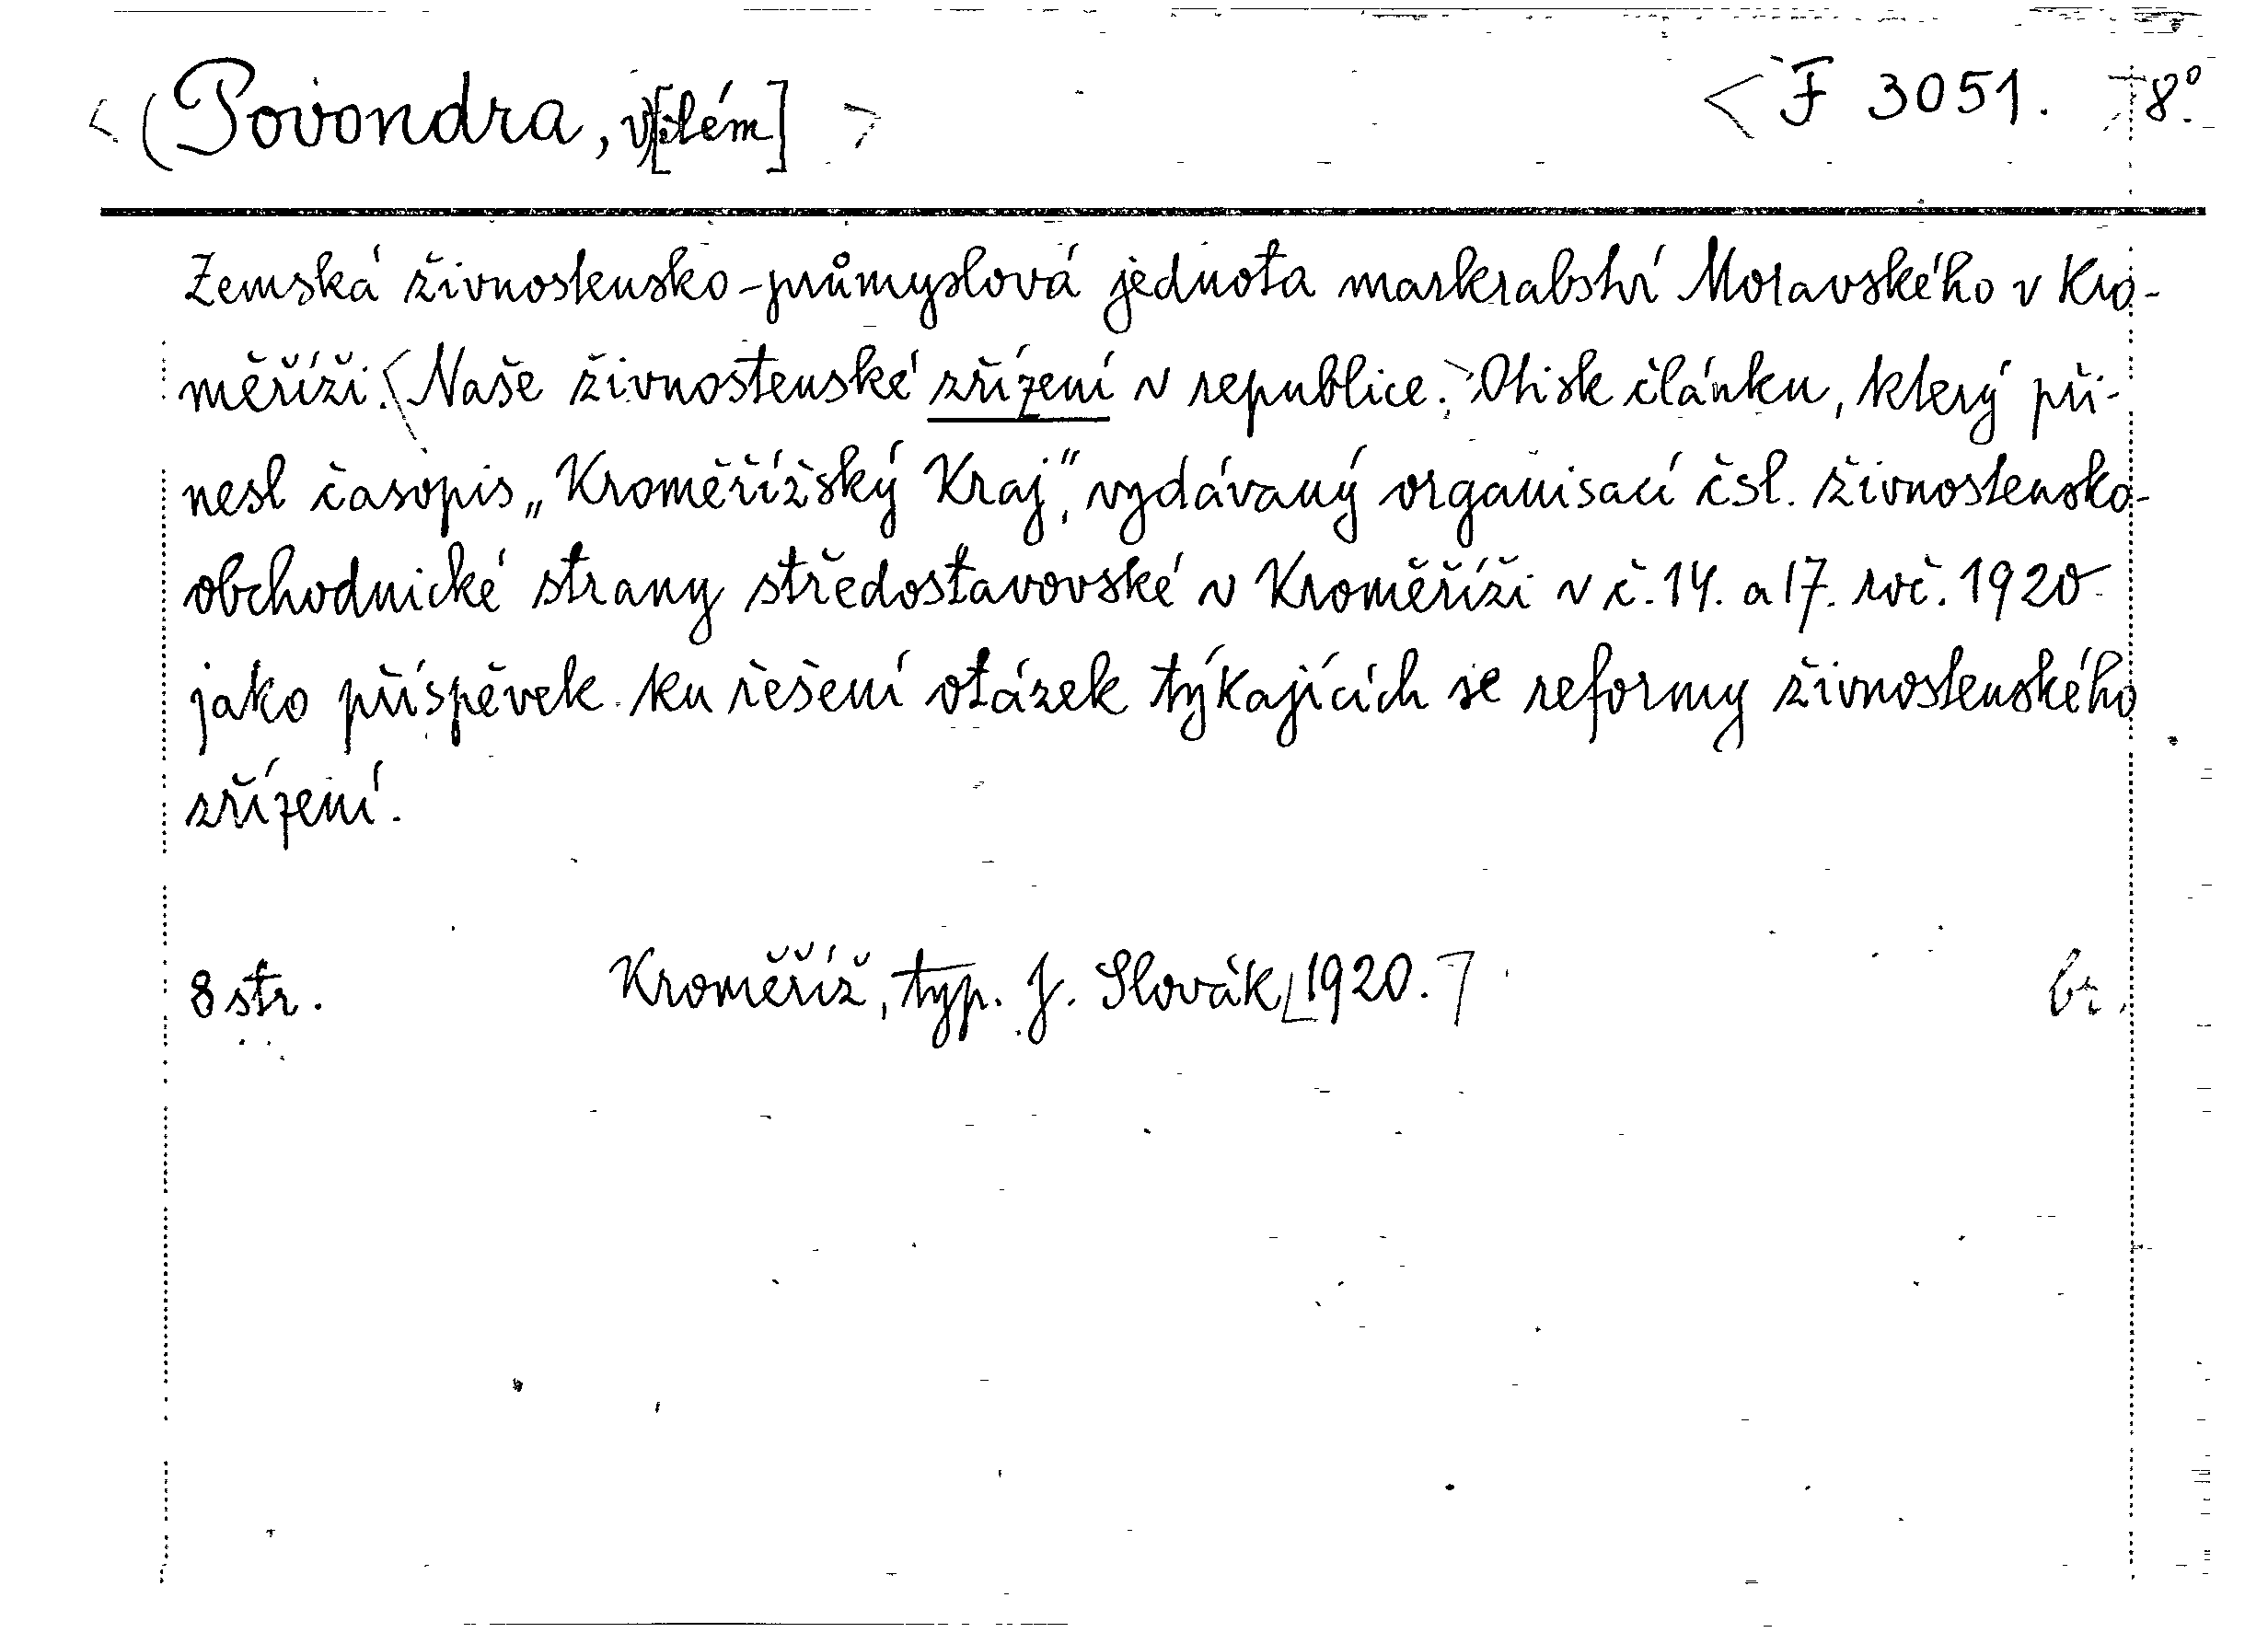 <(Povondra, V)[ilém]> <F 3051.> 8°.
Zemská živnostensko-průmyslová jednota markrabství Moravského v Kro-
měříži.<Naše živnostenské zřízení v republice.> Otisk článku, který při-
nesl časopis „Kroměřížský Kraj“, vydávaný organisací čsl. živnostensko-
obchodnické strany středostavovské v Kroměříži v č. 14. a 17. roč. 1920
jako příspěvek ku řešení otázek týkajících se reformy živnostenského
zřízení.
8 str. Kroměříž, typ. J. Slovák[1920.] br.